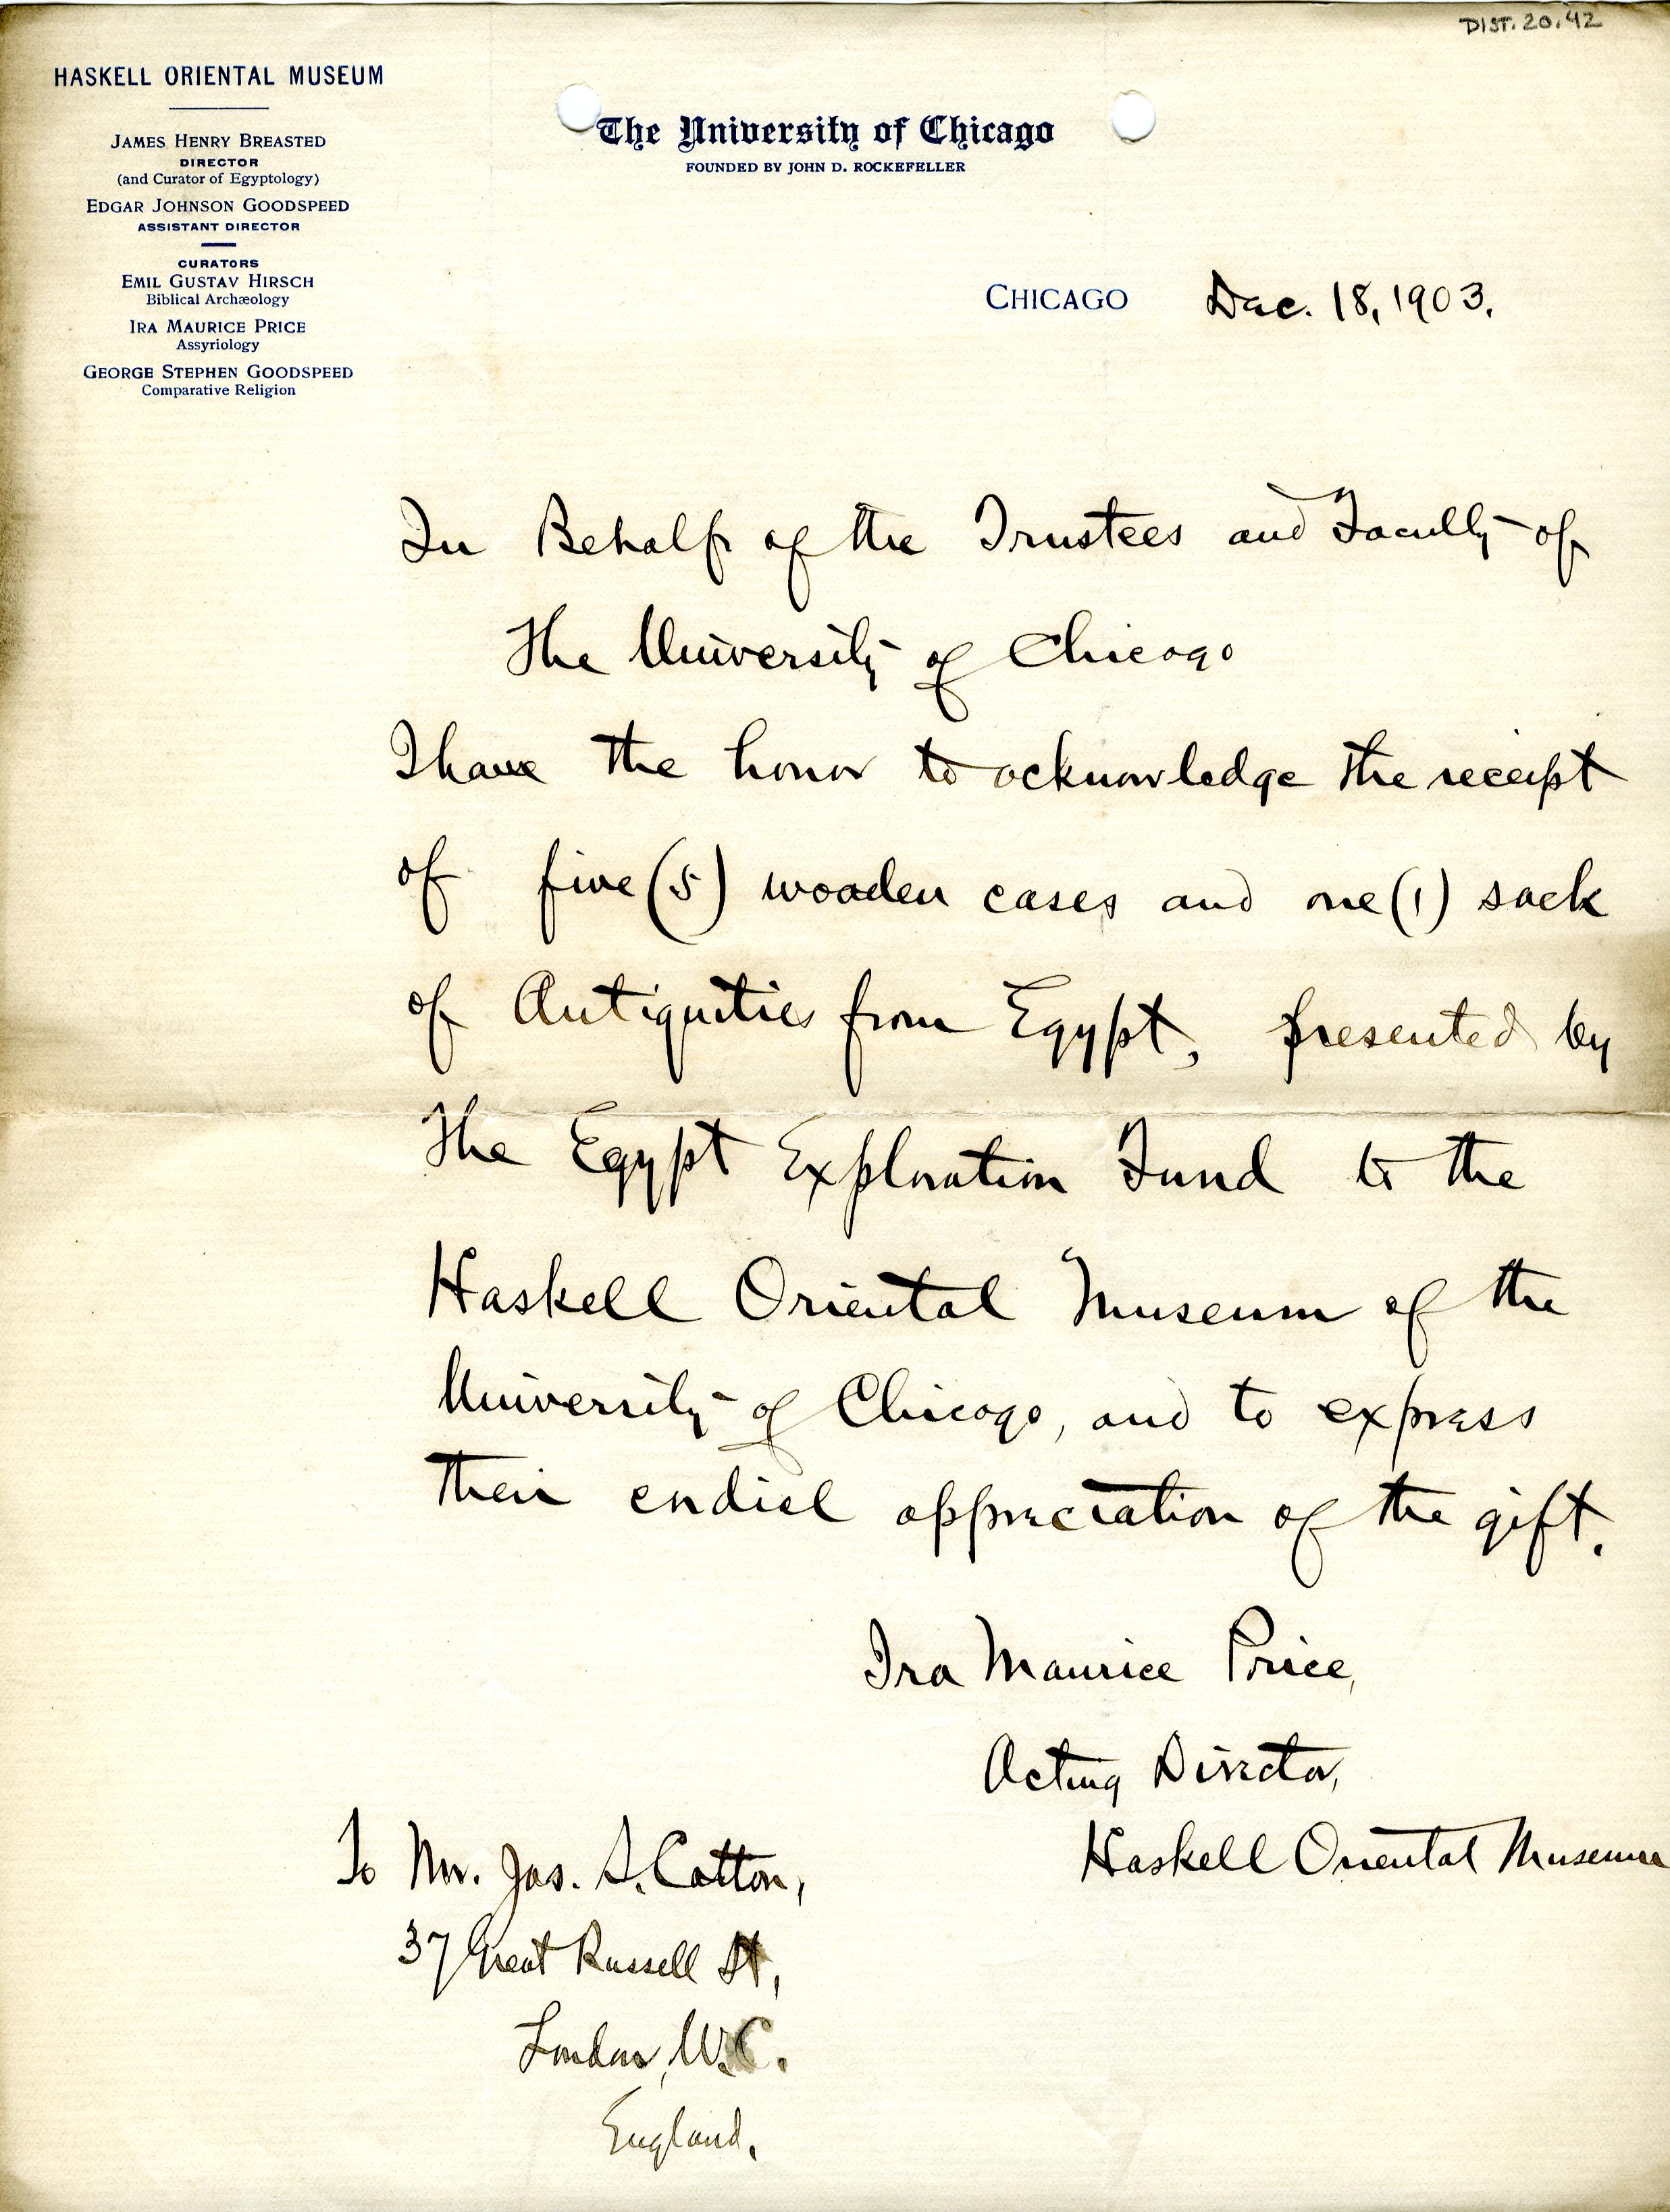 DIST. 20.42
HASKELL ORIENTAL MUSEUM
JAMES HENRY BREASTED
DIRECTOR
(and Curator of Egyptology)
EDGAR JOHNSON GOODSPEED
ASSISTANT DIRECTOR
CURATORS
EMIL GUSTAV HIRSCH
Biblical Archæology
IRA MAURICE PRICE
Assyriology
GEORGE STEPHEN GOODSPEED
Comparative Religion
The University of Chicago
FOUNDED BY JOHN D. ROCKEFELLER
CHICAGO Dec. 18, 1903.
In Behalf of the Trustees and Faculty of
The University of Chicago
I have the honor to acknowledge the receipt
of five (5) wooden cases and one (1) sack
of Antiquities from Egypt, presented by
The Egypt Exploration Fund to the
Haskell Oriental Museum of the
University of Chicago, and to express
their cordial appreciation of the gift.
Ira Maurice Price,
Acting Director,
Haskell Oriental Museum
To Mr. Jas. S. Cotton,
37 Great Russell St,
London, W.C.
England.